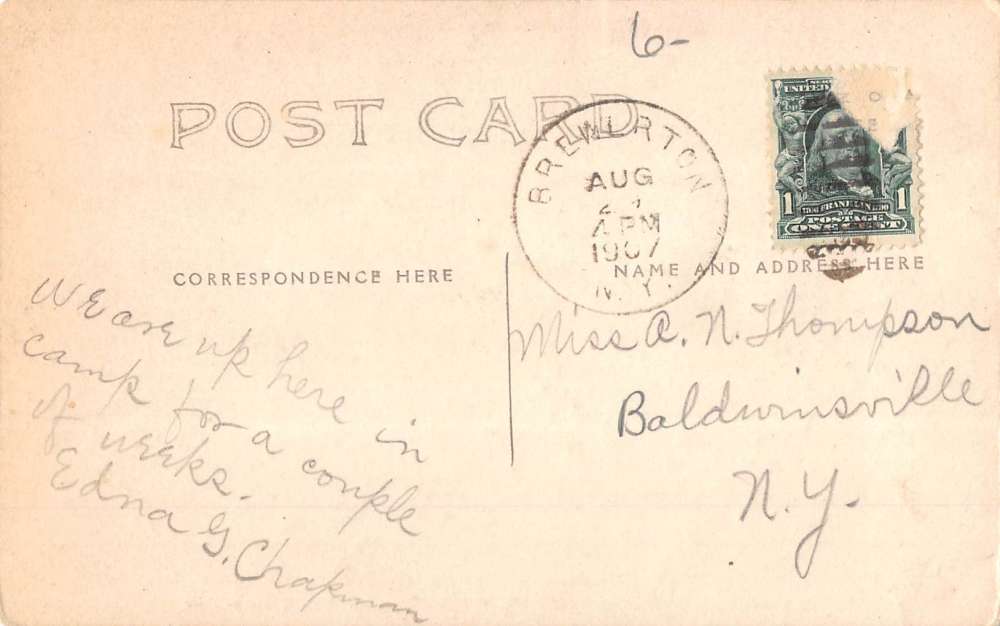 6-
POST CARD
BREWERTON
AUG
4 PM
1907
N.Y.
UNITED
1 FRANKLIN 1
POSTAGE
ONE CENT
CORRESPONDENCE HERE
NAME AND ADDRESS HERE
We are up here in
camp for a couple
of weeks.
Edna G. Chapman
Miss A. N. Thompson
Baldwinsville
N.Y.